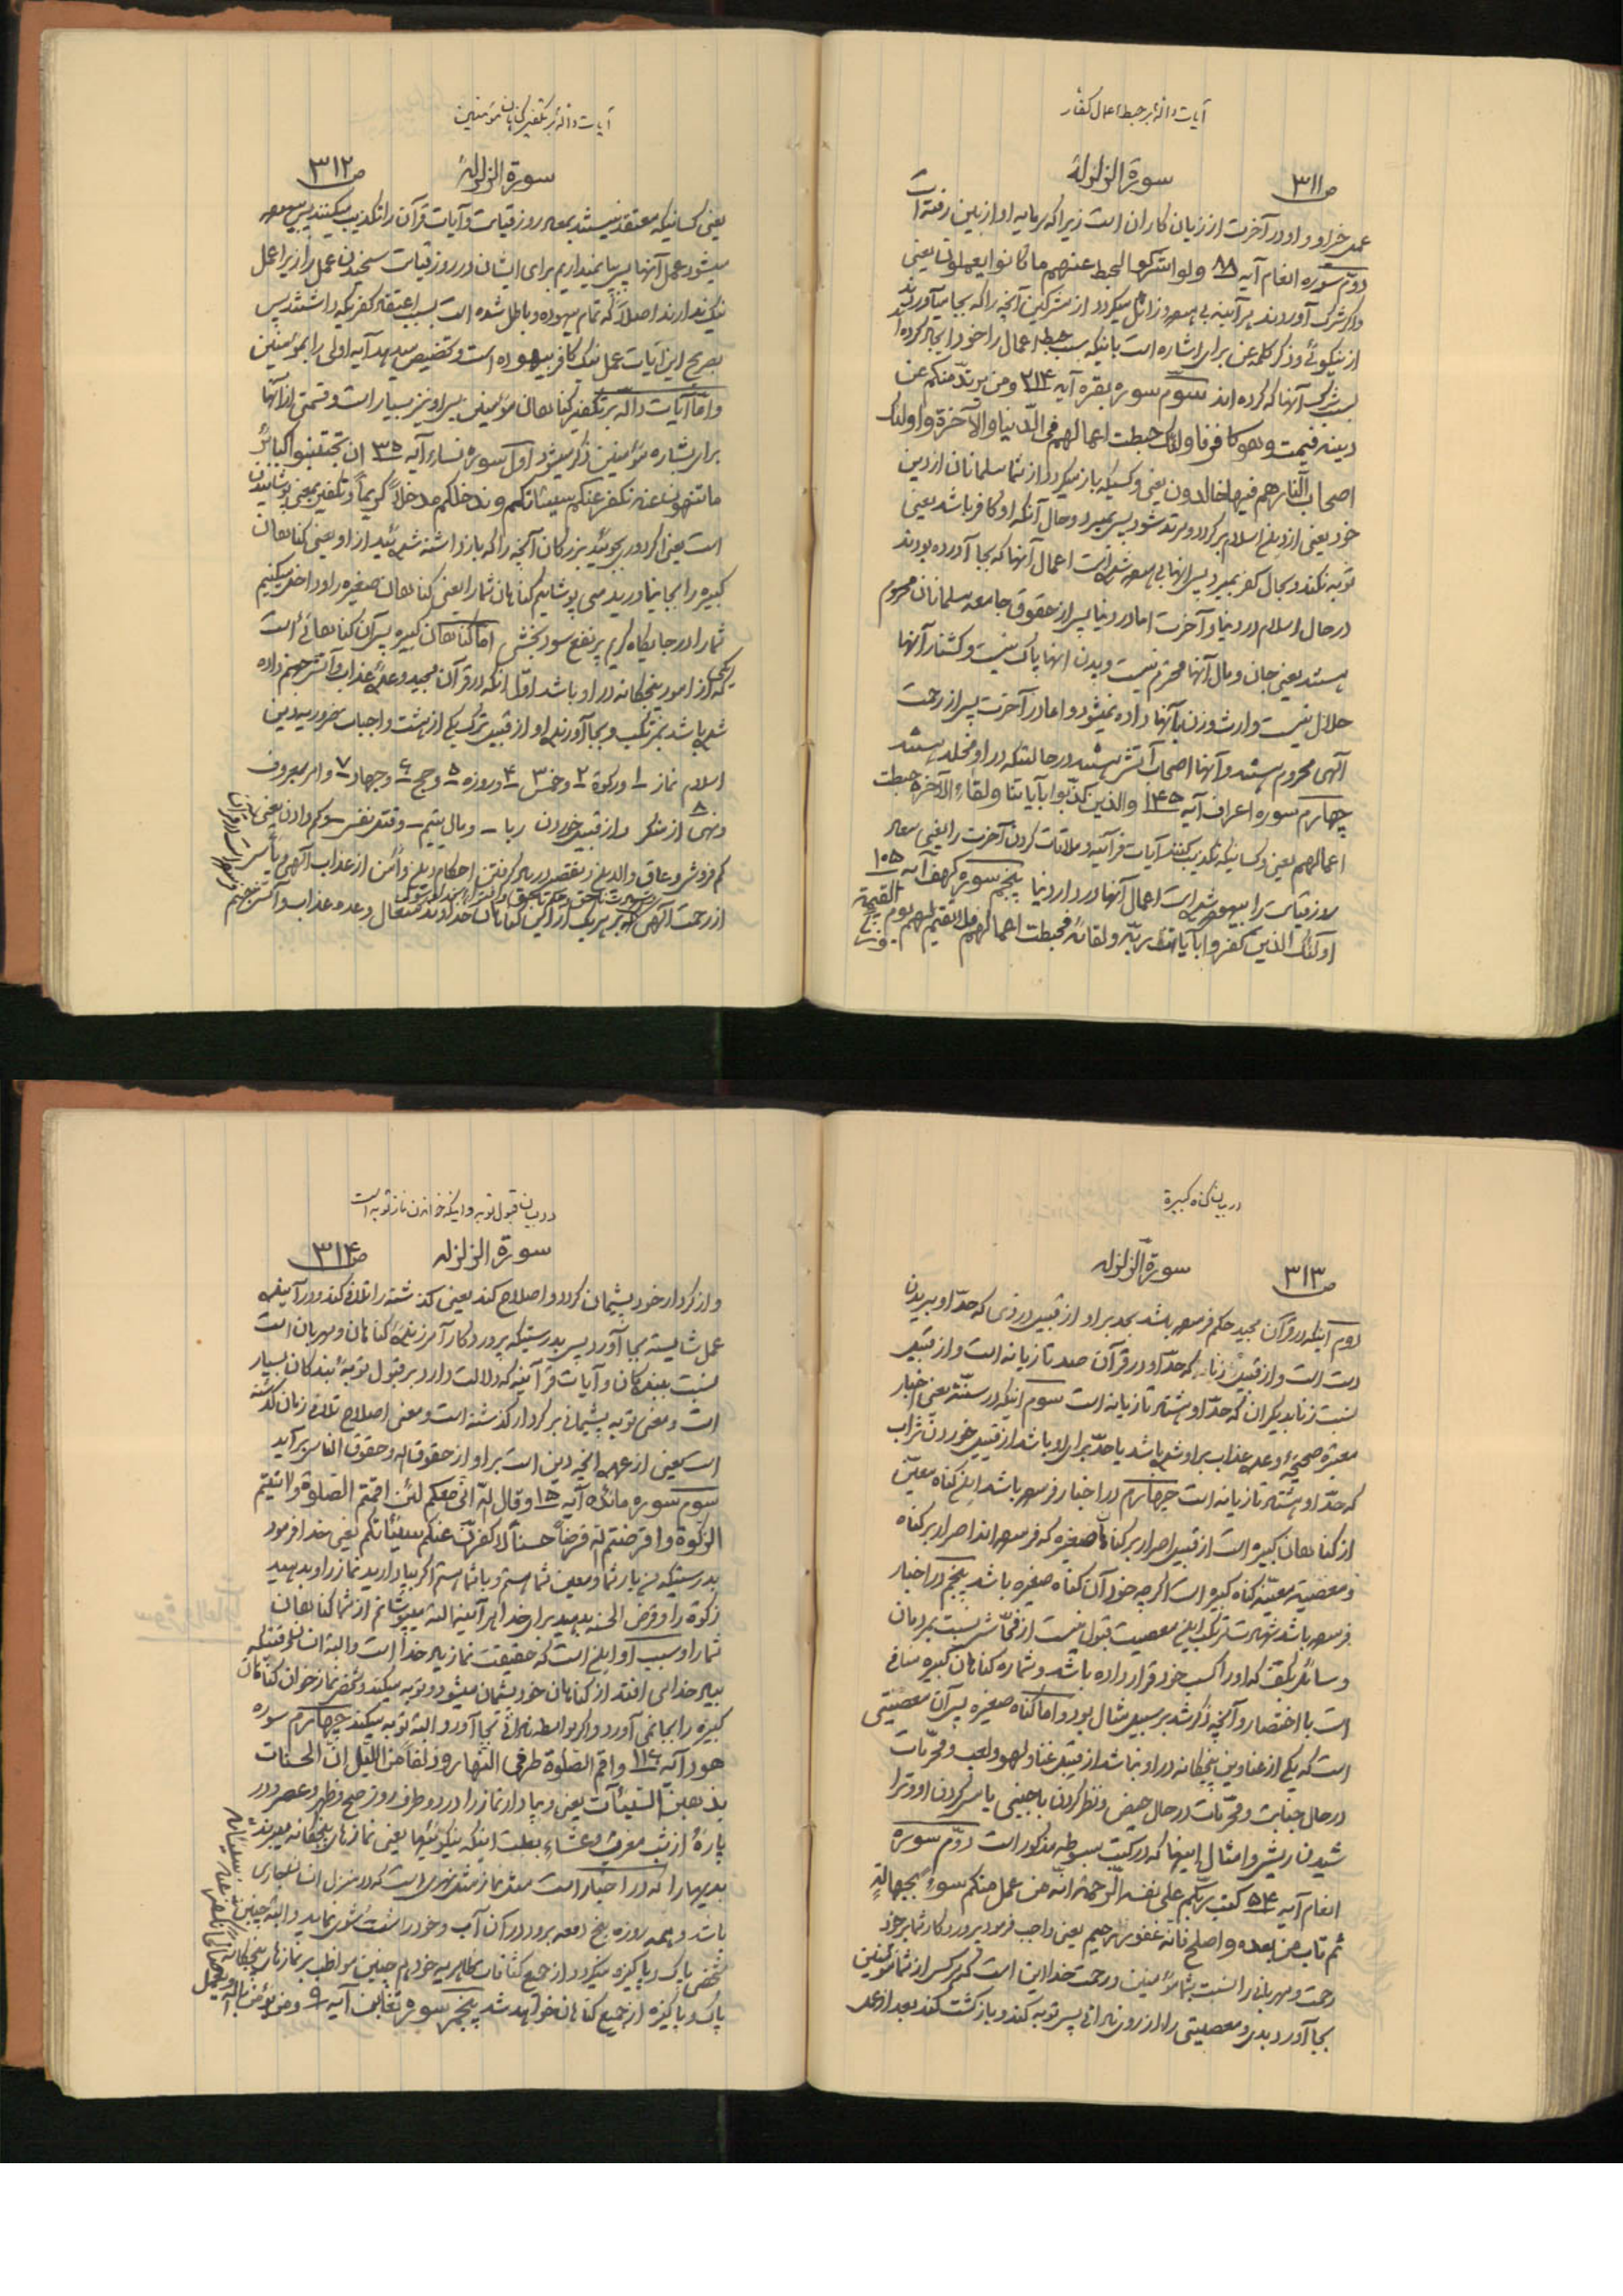 آیات دالّه بر حبط اعمال کفّار
ص ۳۱۱ سورة الزلزلة
عمل خیر او و او در آخرت از زیان کاران است زیرا که سرمایه او از بین رفته است
دوّم سوره انعام آیه ۸۸ ولو اشرکوا لحبط عنهم ما کانوا یعملون یعنی
و اگر شرک آوردند هر آینه بی بهره و زائل میگردد از مشرکین آنچه را که بجا میآوردند
از نیکوئی و ذکر کلمه عن برای اشاره است باینکه سبب حبط اعمال را خود ایجاد کرده اند
بسبب شرک آنها که کرده اند سوم سوره بقره آیه ۲۱۴ ومن یرتدّ منکم عن
دینه فیمت وهو کافر فاولئک حبطت اعمالهم فی الدّنیا والآخرة واولئک
اصحاب النّار هم فیها خالدون یعنی و کسیکه باز میگردد از شما مسلمانان از دین
خود یعنی از دین اسلام برگردد و مرتد شود پس بمیرد و حال آنکه او کافر باشد یعنی
توبه نکند و بحال کفر بمیرد پس آنها بی بهره شده است اعمال آنها که بجا آورده بودند
در حال اسلام در دنیا و آخرت اما در دنیا پس از حقوق جامعه مسلمانان محروم
هستند یعنی جان و مال آنها محترم نیست و بدن آنها پاک نیست و کشتار آنها
حلال نیست و ارث و زن بآنها داده نمیشود و اما در آخرت پس از رحمت
آلهی محروم هستند و آنها اصحاب آتش هستند در حالتیکه در او مخلد هستند
چهارم سوره اعراف آیه ۱۴۵ والذین کذّبوا بآیاتنا ولقاء الآخرة حبطت
اعمالهم یعنی و کسانیکه تکذیب کنند آیات قرآنیه و ملاقات کردن آخرت را یعنی معاد
روز قیامت را بیهوده شده است اعمال آنها در دار دنیا پنجم سوره کهف آیه ۱۰۵
اولئک الذین کفروا بآیات ربّهم ولقائه فحبطت اعمالهم فلا نقیم لهم یوم القیمة وزنا
آیات دالّه بر تکفیر گناهان مؤمنین
سورة الزلزلة ص ۳۱۲
یعنی کسانیکه معتقد نیستند بمعاد روز قیامت و آیات قرآن را تکذیب میکنند پس بیهوده
میشود عمل آنها پس بپا نمیداریم برای ایشان در روز قیامت سنجیدن عمل را زیرا عمل
نیک ندارند اصلاً که تمام بیهوده و باطل شده است بسبب اعتقاد کفریکه داشتند پس
بصریح این آیات عمل نیک کافر بیهوده است و تخصیص میدهد آیه اولی را بمؤمنین
و امّا آیات دالّه بر تکفیر گناهان مؤمنین پس او نیز بسیار است و قسمتی از آنها
برای بشاره مؤمنین ذکر میشود اوّل سوره نساء آیه ۳۵ ان تجتنبوا کبائر
ما تنهون عنه نکفر عنکم سیئاتکم وندخلکم مدخلاً کریماً و تکفیر بمعنی پوشانیدن
است یعنی اگر دوری بجوئید بزرگان آنچه را که باز داشته شده ئید از او یعنی گناهان
کبیره را بجا نیاورید می پوشانیم گناهان شما را یعنی گناهان صغیره را و داخل میکنیم
شما را در جایگاه کریم پر نفع سود بخش امّا گناهان کبیره پس آن گناهانی است
که یکی از امور پنجگانه در او باشد اوّل آنکه در قرآن مجید وعده عذاب و آتش جهنم داده
شده باشد بمرتکب و بجا آورنده او از قبیل ترک یکی از هشت واجبات ضروریه دین
اسلام نماز ۱ و زکوة ۲ و خمس ۳ و روزه ۵ و حج ۶ و جهاد ۷ و امر بمعروف
و نهی از منکر ۸ و از قبیل خوردن ربا – و مال یتیم – و قتل نفس – و کم دادن یعنی
کم فروشی و عاق والدین و تقصیر در یاد گرفتن احکام دین و أمن از عذاب آلهی و یأس
از رحمت آلهی که بر هر یک از این گناهان خداوند متعال وعده عذاب و آتش جهنم
در بیان گناه کبیره
ص ۳۱۳ سورة الزلزله
دوم اینکه در قرآن مجید حکم فرموده باشد بحد بر او از قبیل دزدی که حدّ او بریدن
دست است و از قبیل زنا که حدّ او در قرآن صد تازیانه است و از قبیل
نسبت زنا بدیگران که حدّ او هشتاد تازیانه است سوم اینکه در سنّت یعنی اخبار
معتبره صحیحه وعده عذاب بر او شده باشد یا حدّ برای او باشد از قبیل خوردن شراب
که حدّ او هشتاد تازیانه است چهارم در اخبار فرموده باشد این گناه معیّن
از گناهان کبیره است از قبیل اصرار بر گناهان صغیره که فرموده اند اصرار بر گناه
و معصیت معیّنه گناه کبیره است اگر چه خود آن گناه صغیره باشد پنجم در اخبار
فرموده باشد شهادت مرتکب این معصیت قبول نیست از فحّاشی نسبت بمردمان
و سائل بکف که او را کسب خود قرار داده باشد و شماره گناهان کبیره منافی
است با اختصار و آنچه ذکر شد بر سبیل مثال بود و امّا گناه صغیره پس آن معصیتی
است که یکی از عناوین پنجگانه در او نباشد از قبیل غنا و لهو و لعب و محرّمات
در حال جنابت و محرّمات در حال حیض و نظر کردن باجنبی یا مس کردن او و ترا
شیدن ریش و امثال اینها که در کتب مبسوطه مذکور است دوّم سوره
انعام آیه ۵۴ کتب ربّکم علی نفسه الرّحمة انّه من عمل منکم سوءً بجهالةٍ
ثم تاب من بعده واصلح فانّه غفور رحیم یعنی واجب فرمود پروردگار شما بر خود
رحمت و مهربانی را نسبت بشما مؤمنین و رحمت خدا این است که هر کس از شما مؤمنین
بجا آورد بدی و معصیتی را از روی نادانی پس توبه کند و بازگشت کند بعد از عمل
در بیان قبول توبه و اینکه خواندن نماز توبه است
سورة الزلزله ص ۳۱۴
و از کردار خود پشیمان گردد و اصلاح کند یعنی گذشته را تلافی کند و در آینده
عمل شایسته بجا آورد پس بدرستیکه پروردگار آمرزنده گناهان و مهربان است
نسبت ببندگان و آیات قرآنیه که دلالت دارد بر قبول توبه بندگان بسیار
است و معنی توبه پشیمانی بر کردار گذشته است و معنی اصلاح تلافی زمان گذشته
است یعنی از عهده آنچه دین است بر او از حقوق الله و حقوق الناس برآید
سوم سوره مائده آیه ۱۵ وقال لله انّی معکم لئن اقمتم الصّلوة وآتیتم
الزکوة واقرضتم لله قرضاً حسناً لاکفرنّ عنکم سیئاتکم یعنی خدا فرمود
بدرستیکه من یار شما و معین شما هستم و با شما هستم اگر بپا دارید نماز را و بدهید
زکوة را و قرض الحسنه بدهید برای خدا هر آینه البته میپوشانم از شما گناهان
شما را و سبب او این است که حقیقت نماز یاد خدا است و البته انسان وقتیکه
بیاد خدا می افتد از گناهان خود پشیمان میشود و توبه میکند و شخص نماز خوان گناهان
کبیره را بجا نمی آورد و اگر بواسطه نادانی بجا آورد البته توبه میکند چهارم سوره
هود آیه ۱۱۶ واقم الصّلوة طرفی النّهار وزلفاً من اللیل انّ الحسنات
یذهبن السّیئآت یعنی و بپا دار نماز را در دو طرف روز صبح و ظهر و عصر و در
پارهٔ از شب مغرب و عشاء بعلت اینکه نیکوئیها یعنی نمازهای پنجگانه میبرند
بدیها را که در اخبار است مثل نماز مثل نهری است که در منزل انسان جاری
باشد و همه روزه پنج دفعه برود در آن آب و خود را شست شوی نماید و البته چنین
شخص پاک و پاکیزه میگردد از جمیع کثافات ظاهریه خود هم چنین مواظب بر نمازهای پنجگانه
پاک و پاکیزه از جمیع گناهان خواهد شد پنجم سوره تغابن آیه ۹ ومن یؤمن بالله ویعمل
صالحاً نکفر عنه سیئاته